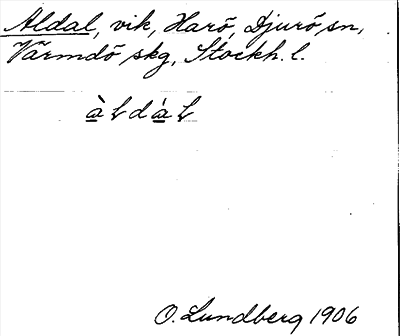 Aldal, vik, Harö, Djurö sn,
Värmdö skg, Stockh. l.
àɫdáɫ
O. Lundberg 1906